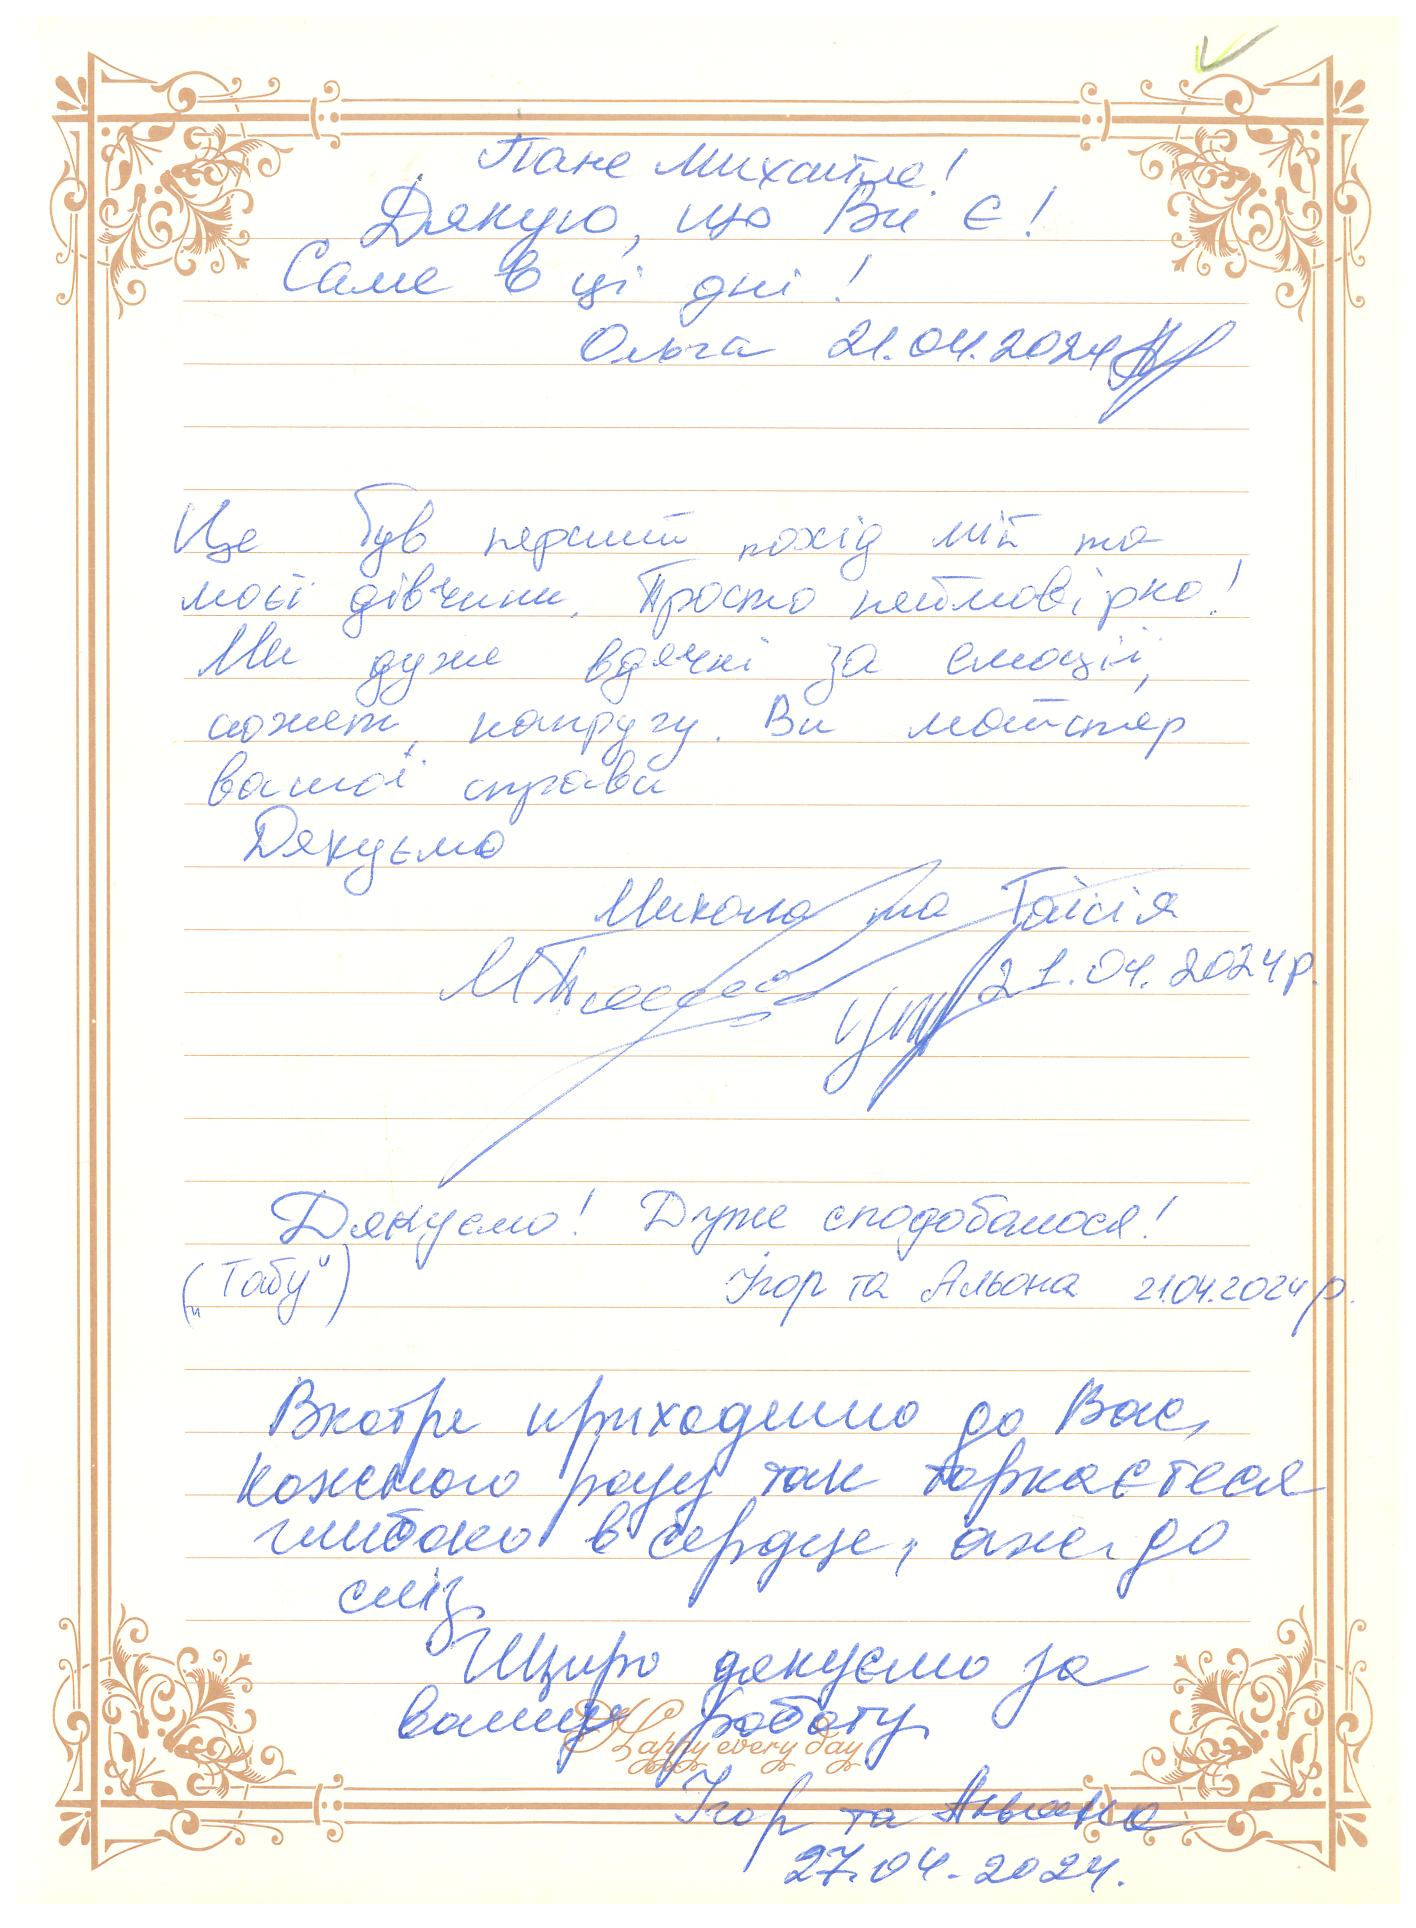 Пане Михайле!
Дякую, що Ви є!
Саме в ці дні!
Ольга 21.04.2024
Це був перший похід мій та
моєї дівчини. Просто неймовірно!
Ми дуже вдячні за емоції,
сюжет, напругу. Ви майстер
вашої справи
Дякуємо
Микола та Таїсія
21.04.2024р.
Дякуємо! Дуже сподобалося!
(„Табу") Ігор та Альона 21.04.2024р.
Вкотре приходимо до Вас,
кожного разу так торкаєтеся
глибоко в серце, аже до
сліз
Щиро дякуємо за
вашу роботу
Happy every day
Ігор та Альона
27.04.2024.